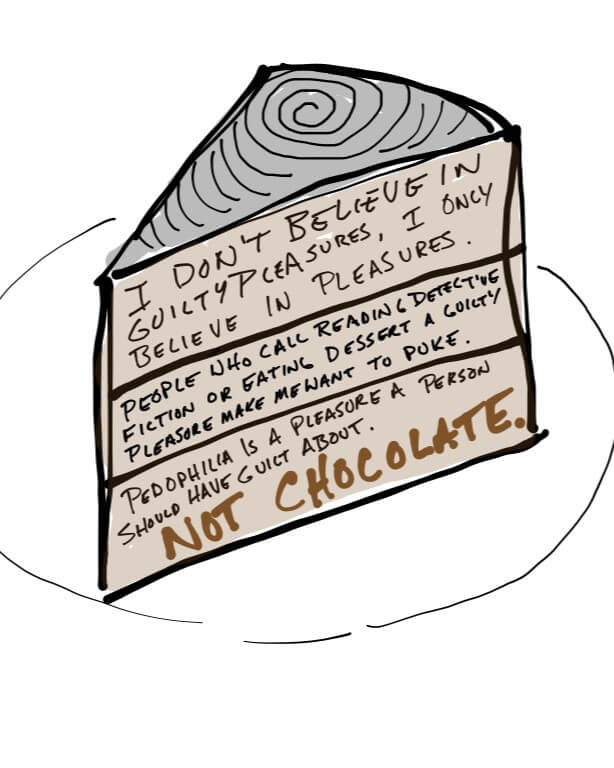 I DON'T BELIEVE IN
GUILTY PLEASURES, I ONLY
BELIEVE IN PLEASURES.
PEOPLE WHO CALL READING DETECTIVE
FICTION OR EATING DESSERT A GUILTY
PLEASURE MAKE ME WANT TO PUKE.
PEDOPHILIA IS A PLEASURE A PERSON
SHOULD HAVE GUILT ABOUT.
NOT CHOCOLATE.